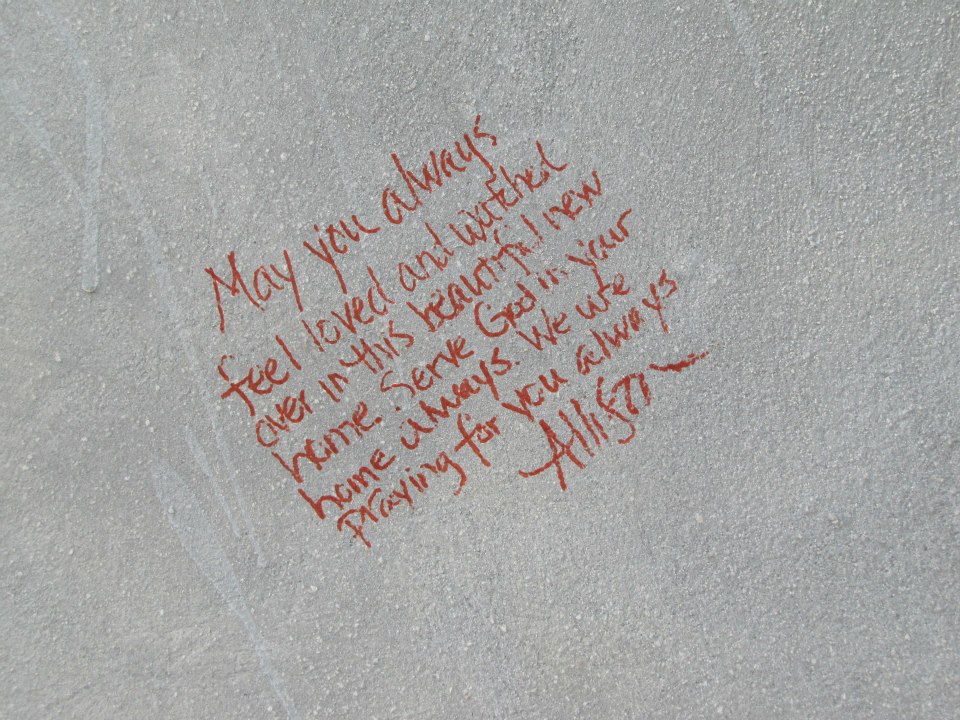 May you always
feel loved and watched
over in this beautiful new
home. Serve God in your
home always. We are
praying for you always
Allison